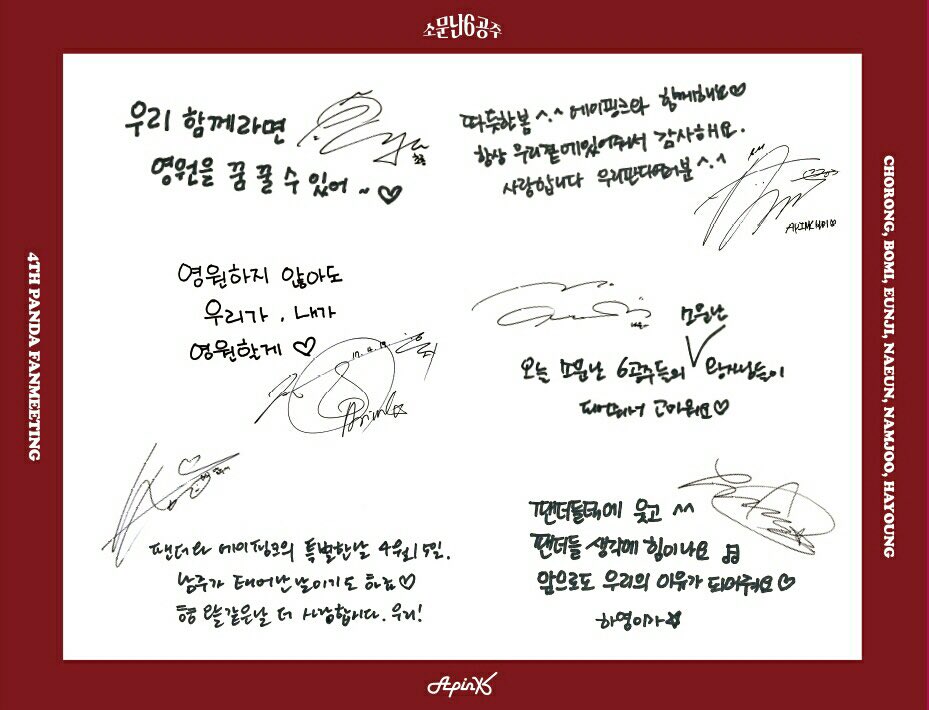 소문난6공주
우리 함께라면
영원을 꿈 꿀 수 있어 ~ ♡
따듯한봄 ^.^ 에이핑크와 함께해요♡
항상 우리곁에있어주셔서 감사해요.
사랑합니다 우리판다여러분 ^.^
영원하지 않아도
우리가, 내가
영원할게 ♡
17.4.15
Apink
소문난
오늘 소문난 6공주들의 ∨ 왕자님들이
되어줘서 고마워요♡
팬더와 에이핑크의 특별한날 4월15일.
남주가 태어난날이기도 하죠♡
오늘같은날 더 사랑합니다. 우리!
팬더들덕에 웃고 ^^
팬더들 생각에 힘이나요 ♫
앞으로도 우리의 이유가 되어줘요♡
하영이가☆
4TH PANDA FANMEETING
CHORONG, BOMI, EUNJI, NAEUN, NAMJOO, HAYOUNG
Apink